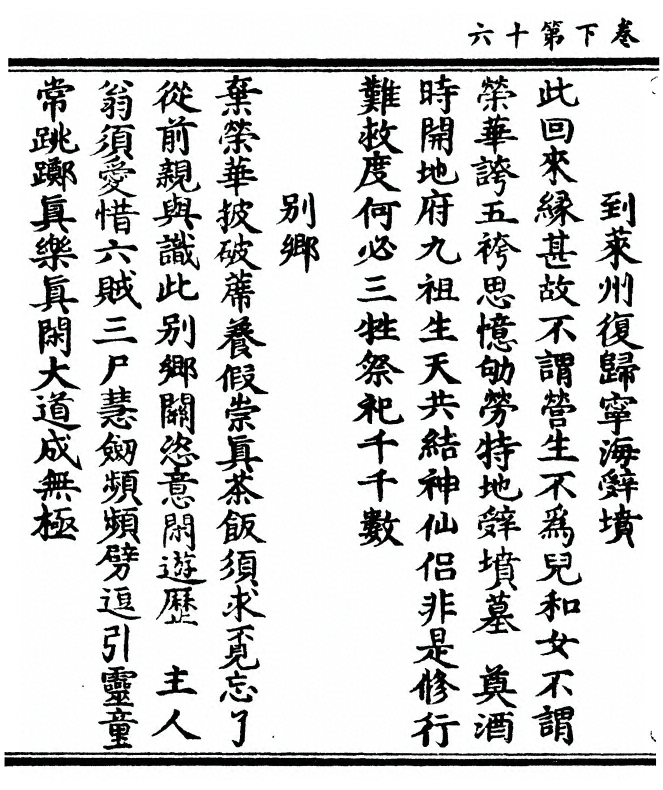 卷下第十六
到萊州復歸寧海辭墳
此回來緣甚故不謂營生不爲兒和女不謂
榮華誇五袴思憶劬勞特地辭墳墓　奠酒
時開地府九祖生天共結神仙侶非是修行
難救度何必三牲祭祀千千數
別鄉
棄榮華披破蓆養假崇眞茶飯須求覓忘了
從前親與識此別鄉關恣意閑遊歷　主人
翁須愛惜六賊三尸慧劒頻頻劈逗引靈童
常跳躑眞樂眞閑大道成無極